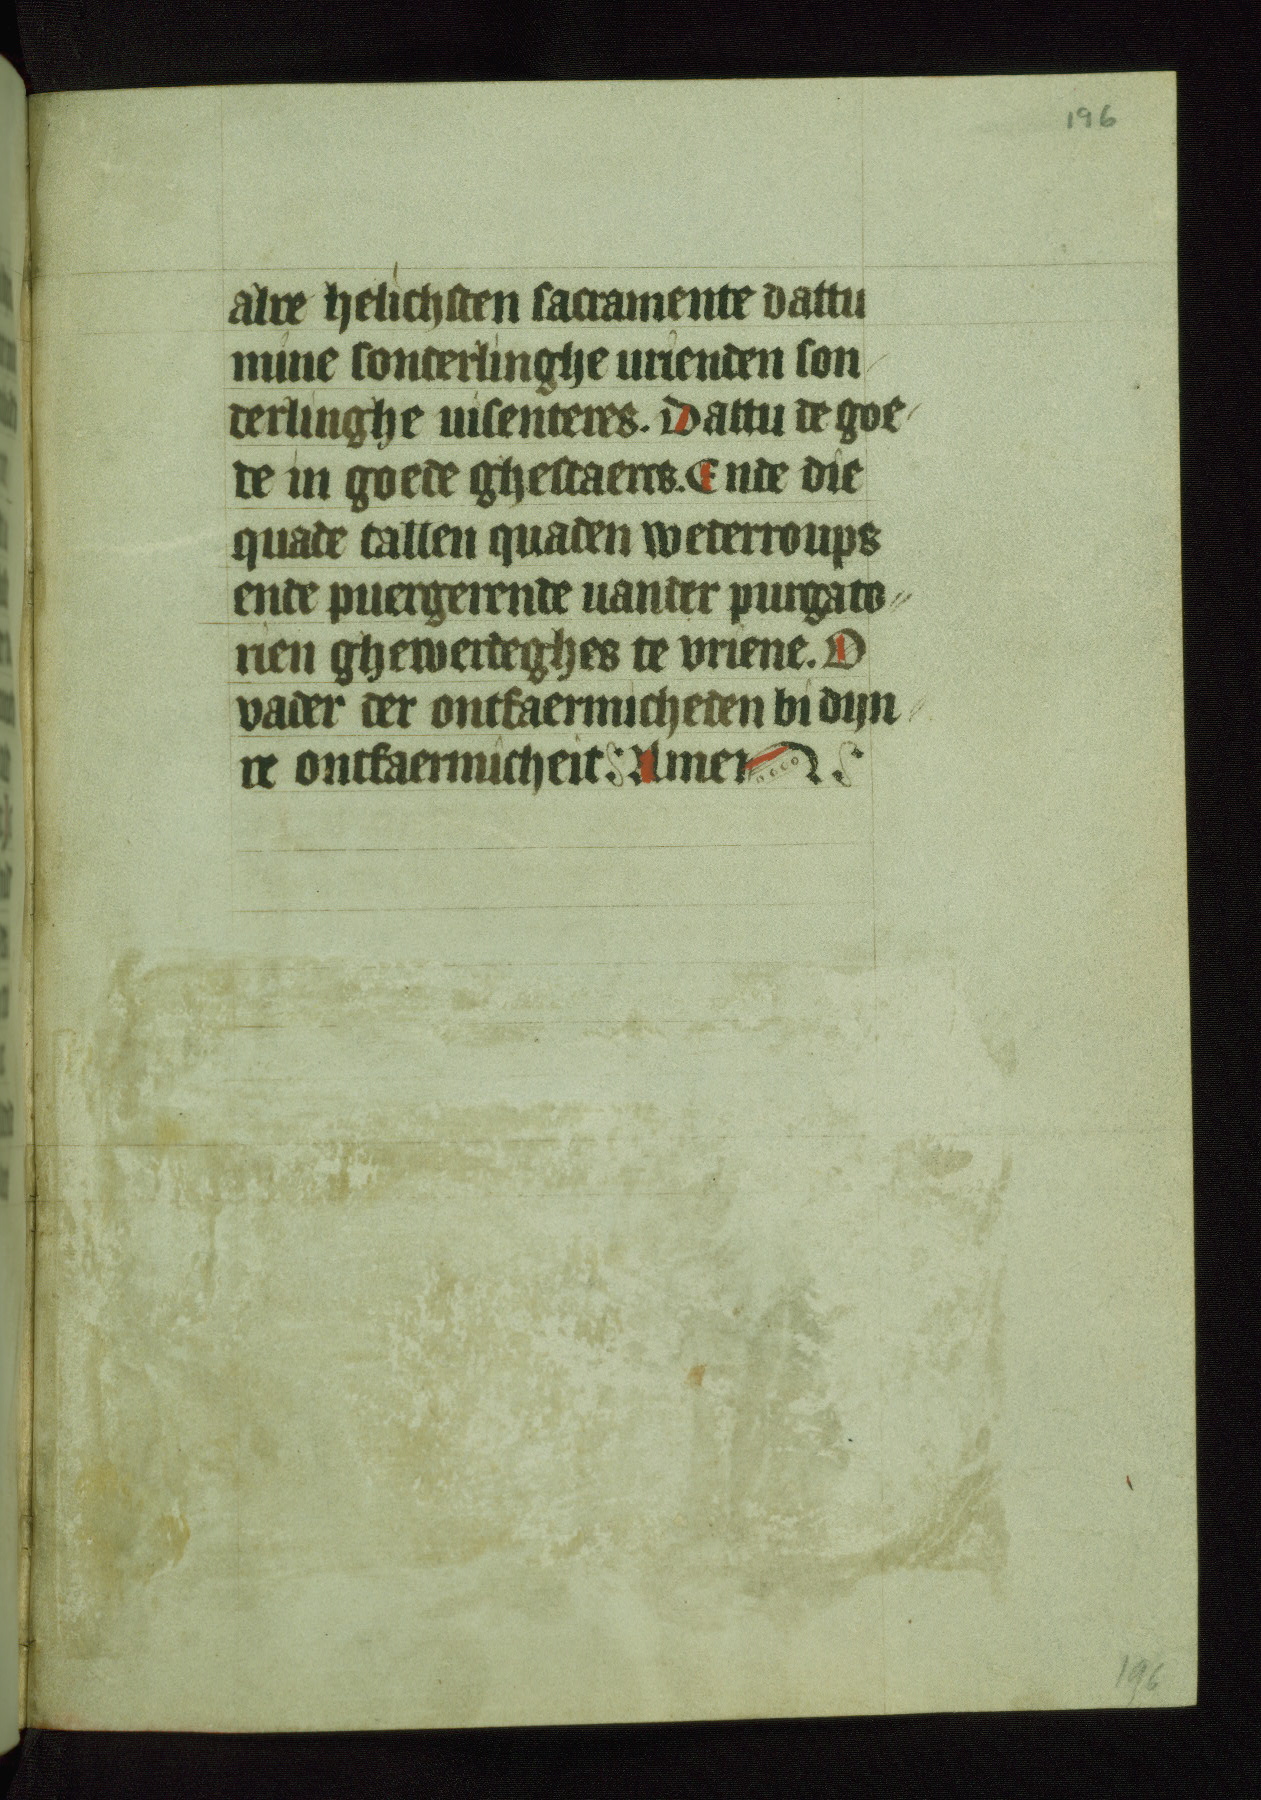 196
alre helichsten sacramente dattu
mine sonderlinghe urienden son
derlinghe uisenteres. Dattu de goe
de in goede ghestaerts. Ende die
quade tallen quaden wederroups
ende puergerende uander purgato
rien ghewerdeghes te vriene. O
vader der ontfaermicheden bi dijn
re ontfaermicheit. Amen
196